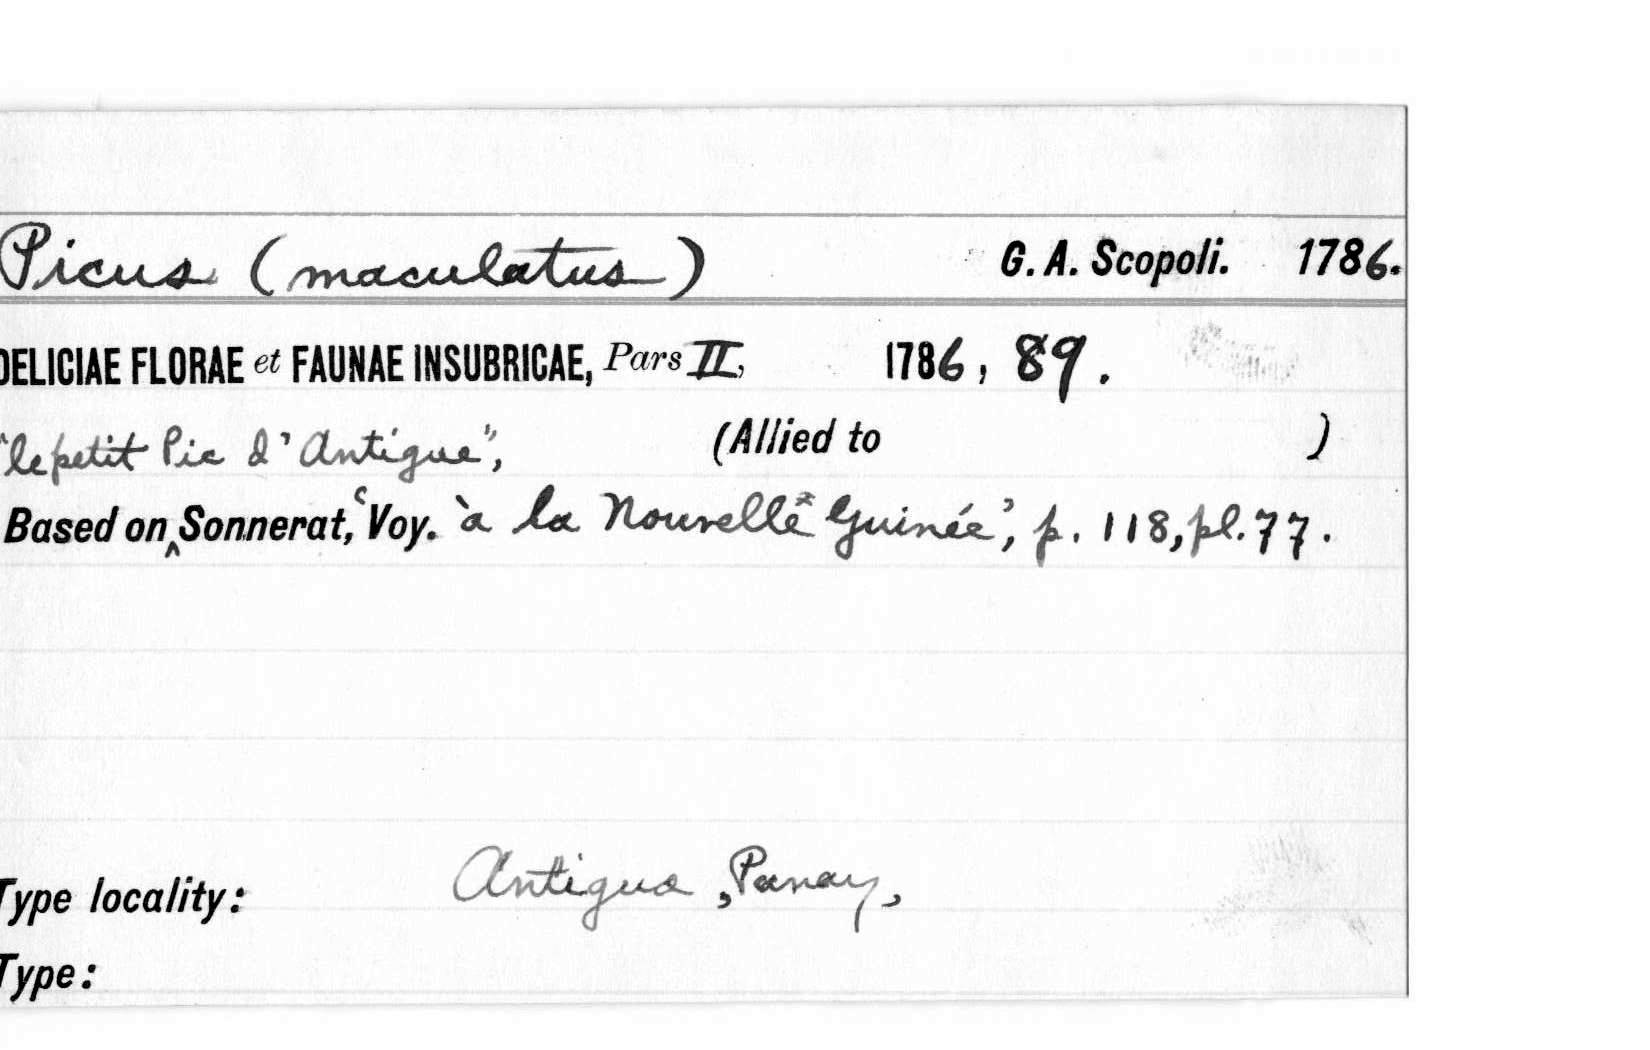 Picus (maculatus) G. A. Scopoli. 1786.
DELICIAE FLORAE et FAUNAE INSUBRICAE, Pars II, 1786, 89.
"le petit Pic d'Antigue", (Allied to )
Based on ‸ Sonnerat, 'Voy. à la Nouvelle Guinée', p. 118, pl. 77.
Type locality: Antigua, Panay,
Type: